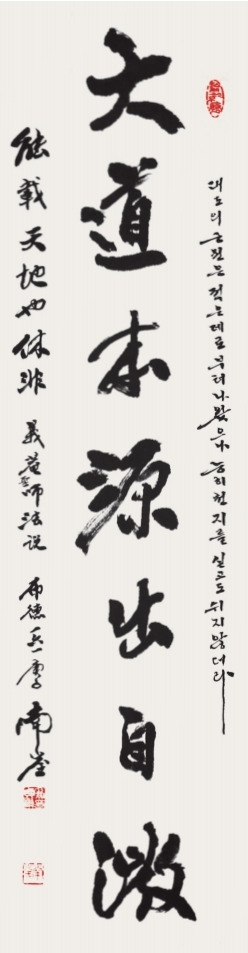 대도의 근원은 적은데로부터 나왔으나 능히 천지를 실고도 쉬지않더라
大道本源出自微
能載天地也休非 義菴師法說 布德 南